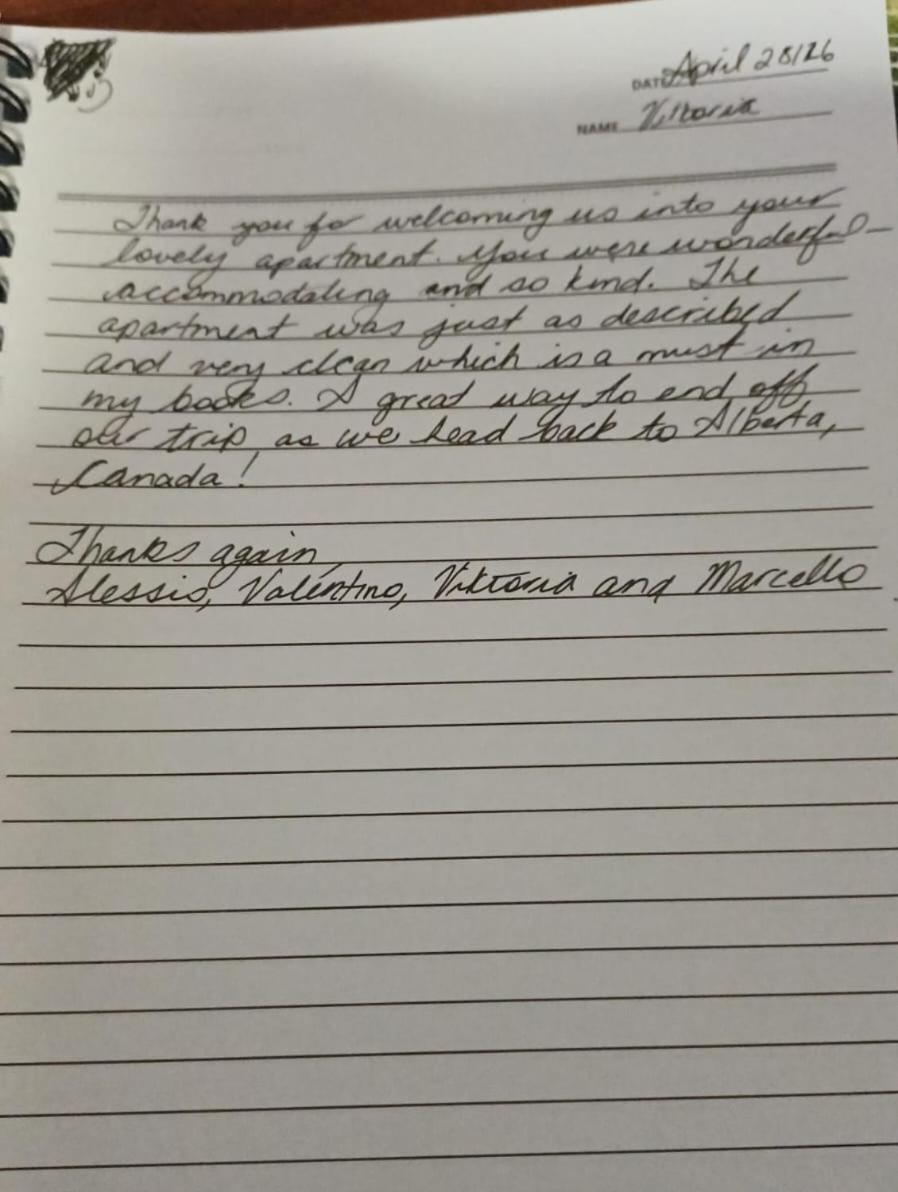 DATE April 28/26
NAME Viktoria
Thank you for welcoming us into your
lovely apartment. You were wonderful -
accommodating and so kind. The
apartment was just as described
and very clean which is a must in
my books. A great way to end off
our trip, as we head back to Alberta,
Canada!
Thanks again,
Alessio, Valentino, Viktoria and Marcello